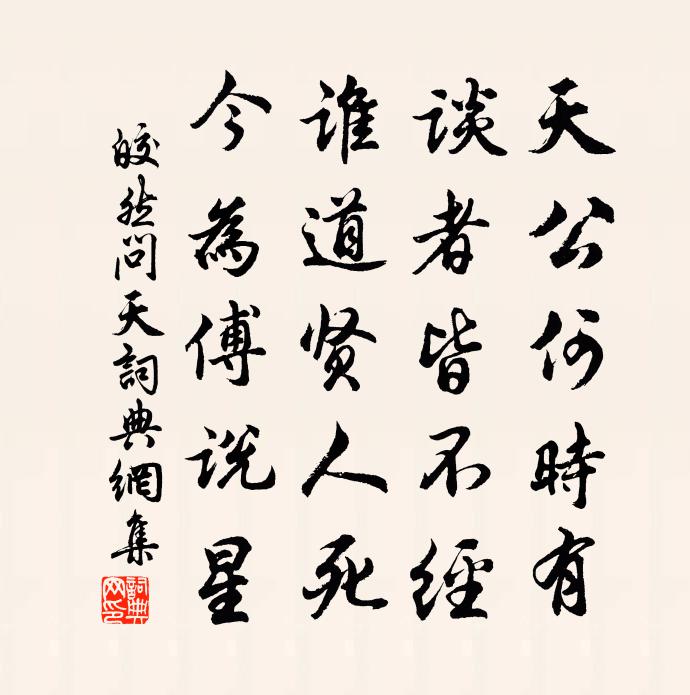 天公何時有
談者皆不經
誰道贤人死
今為傅说星
皎然问天詞典網集
詞典網印